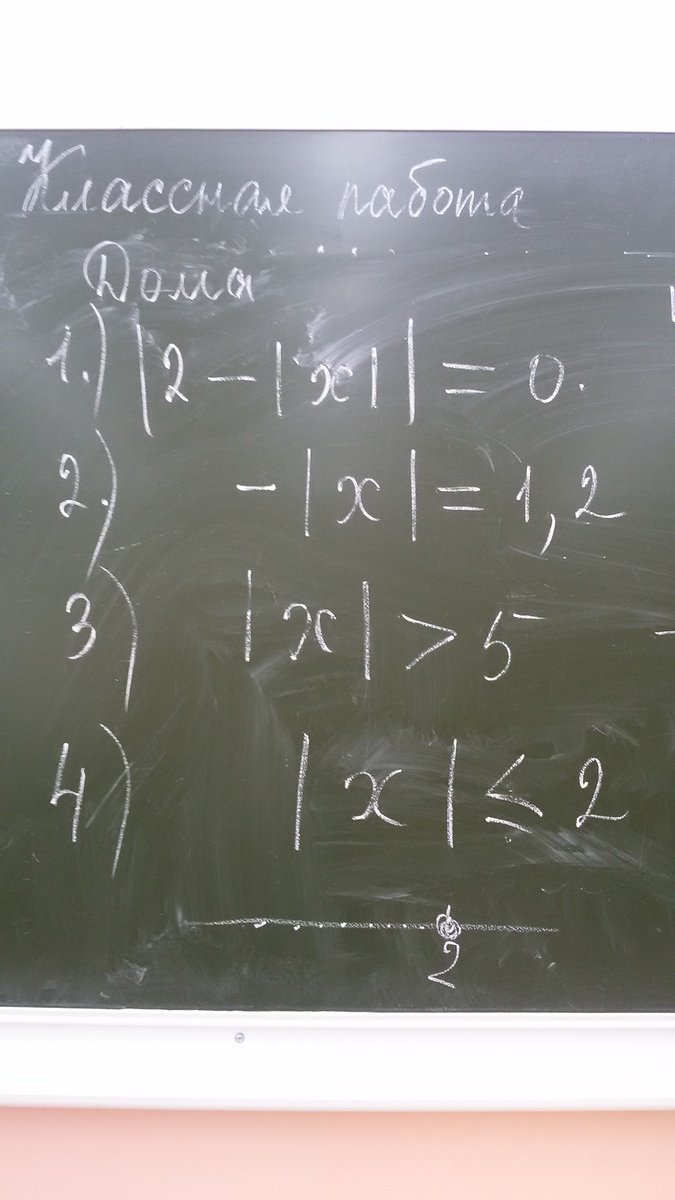 Классная работа
Дома
1.) |2 - |x|| = 0.
2.) - |x| = 1,2
3) |x| > 5
4) |x| ≤ 2
2